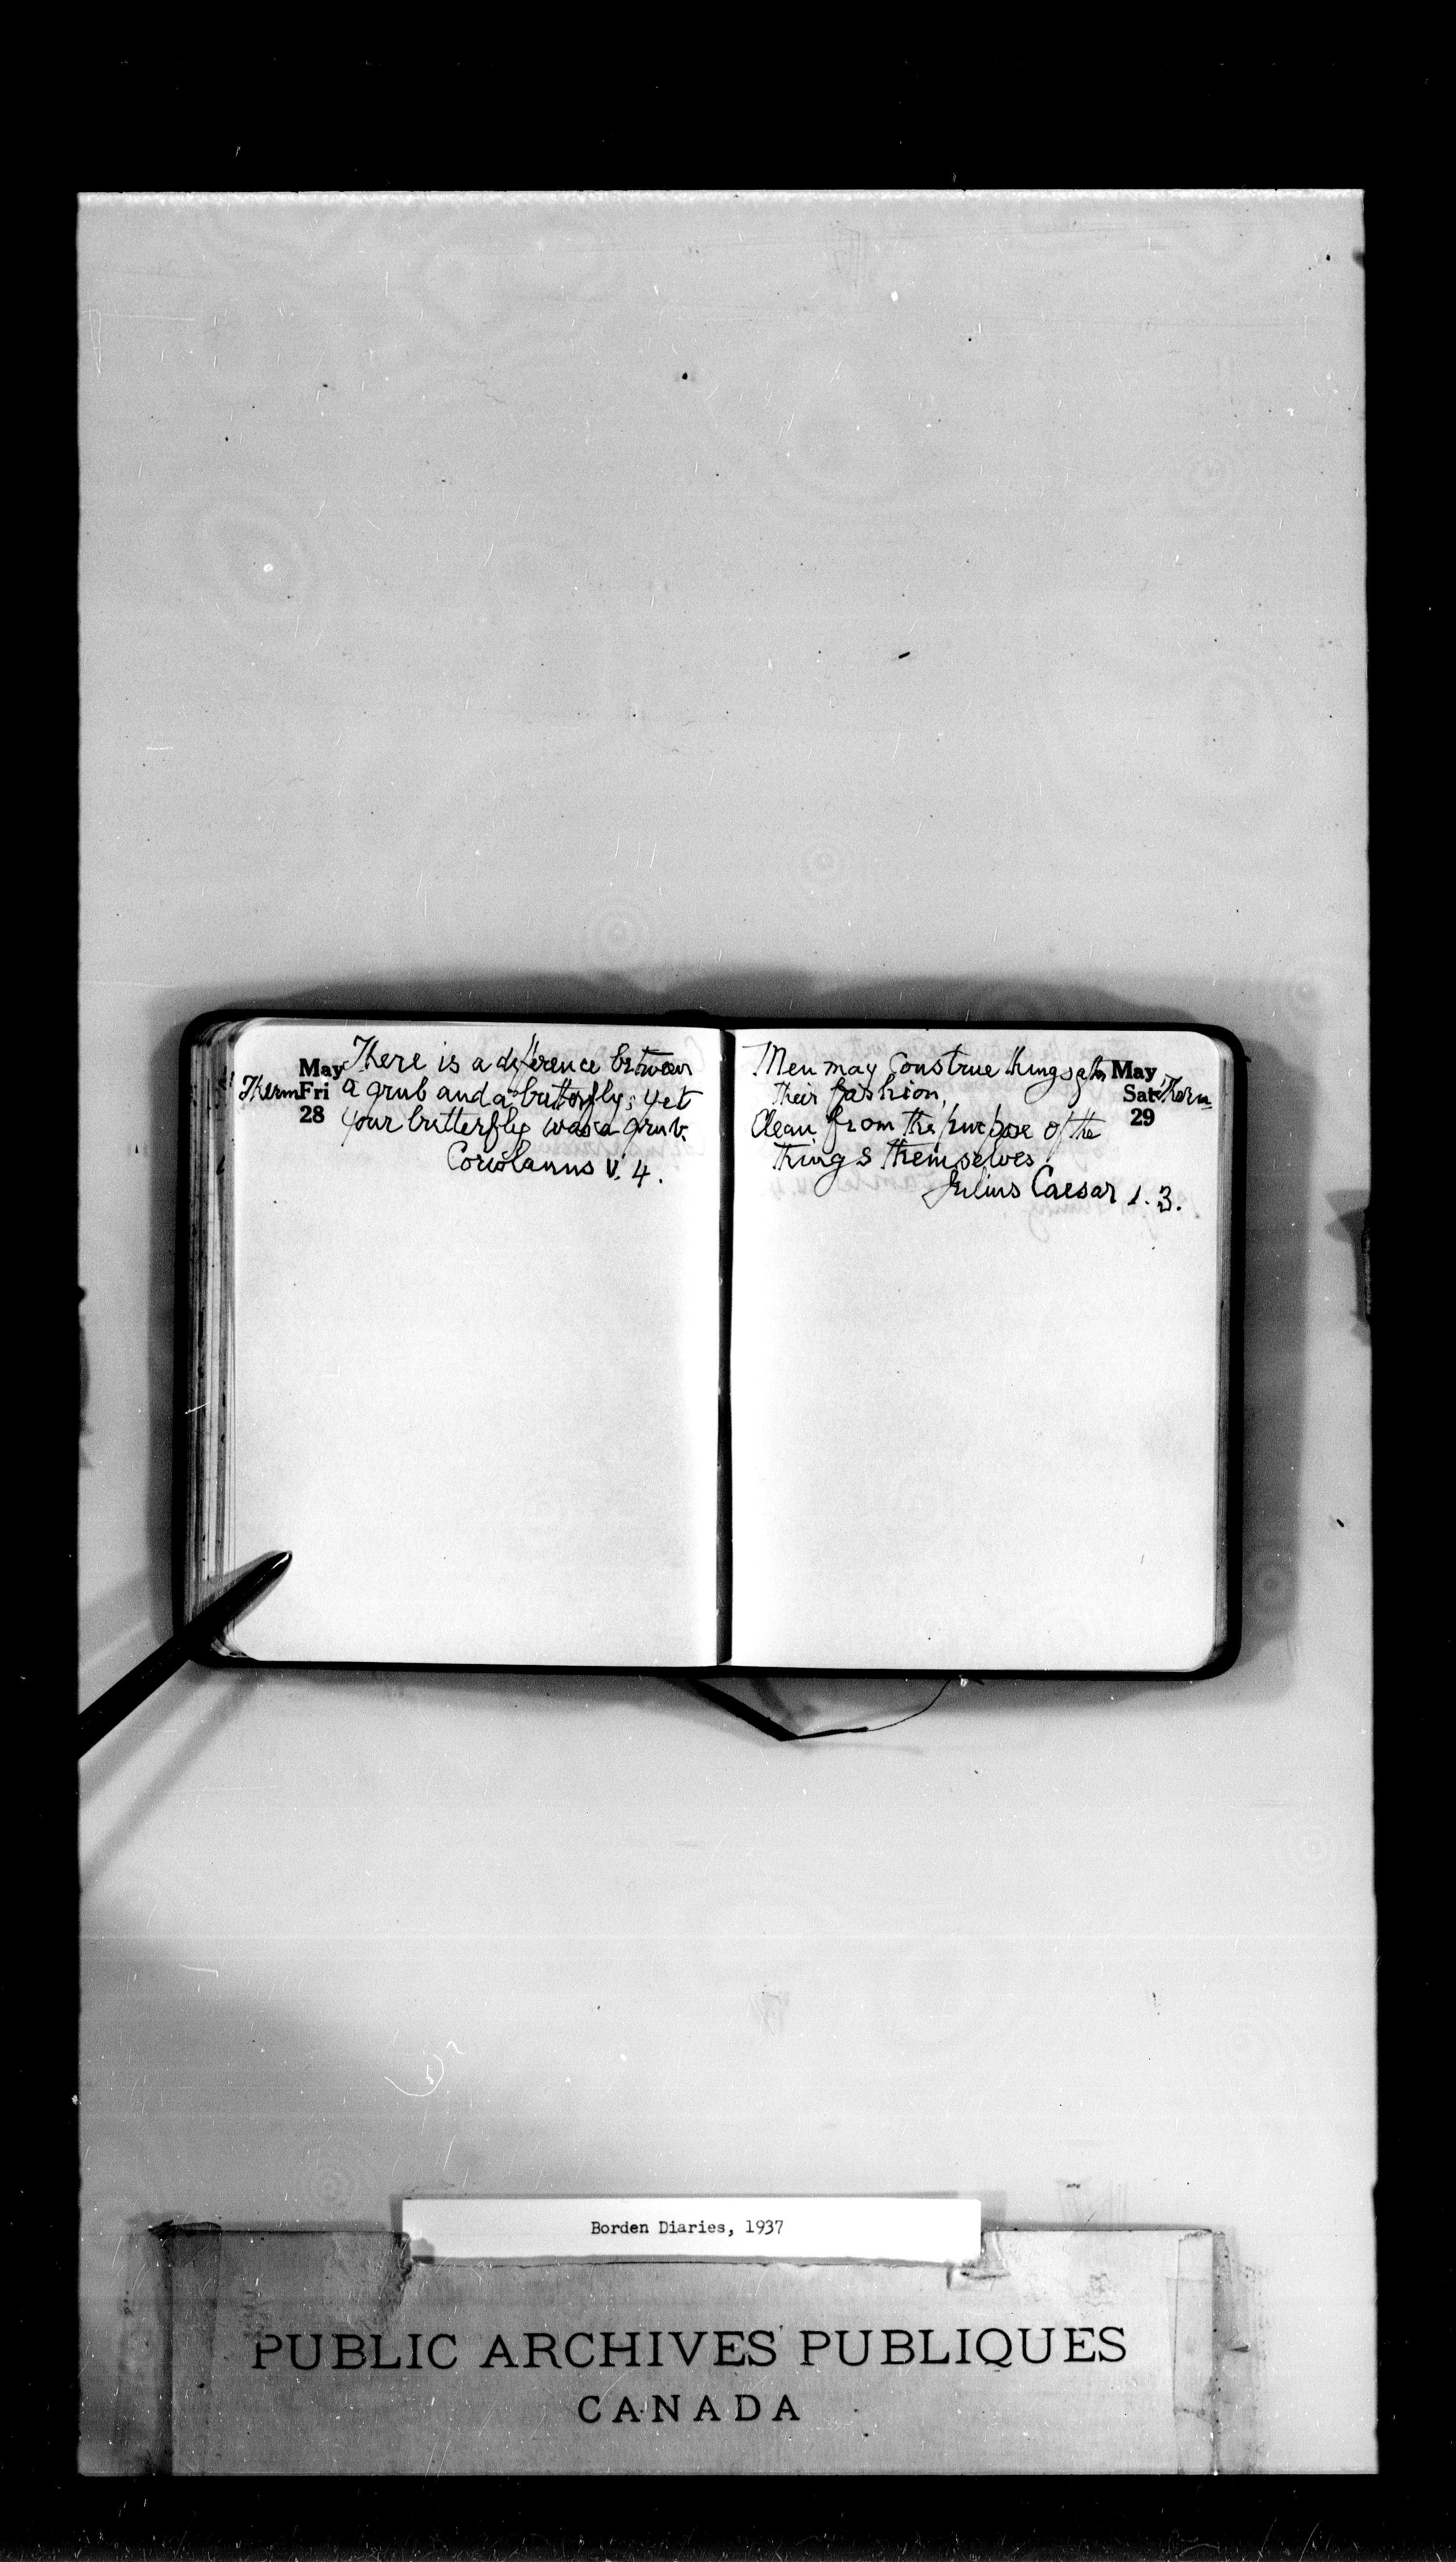 May There is a difference between
Therm Fri a grub and a butterfly; yet
28 your butterfly was a grub.
Coriolanus V. 4.
Men may Construe things after May
their fashion, Sat Therm
Clean from the purpose of the 29
things themselves.
Julius Caesar 1. 3.
Borden Diaries, 1937
PUBLIC ARCHIVES PUBLIQUES
CANADA